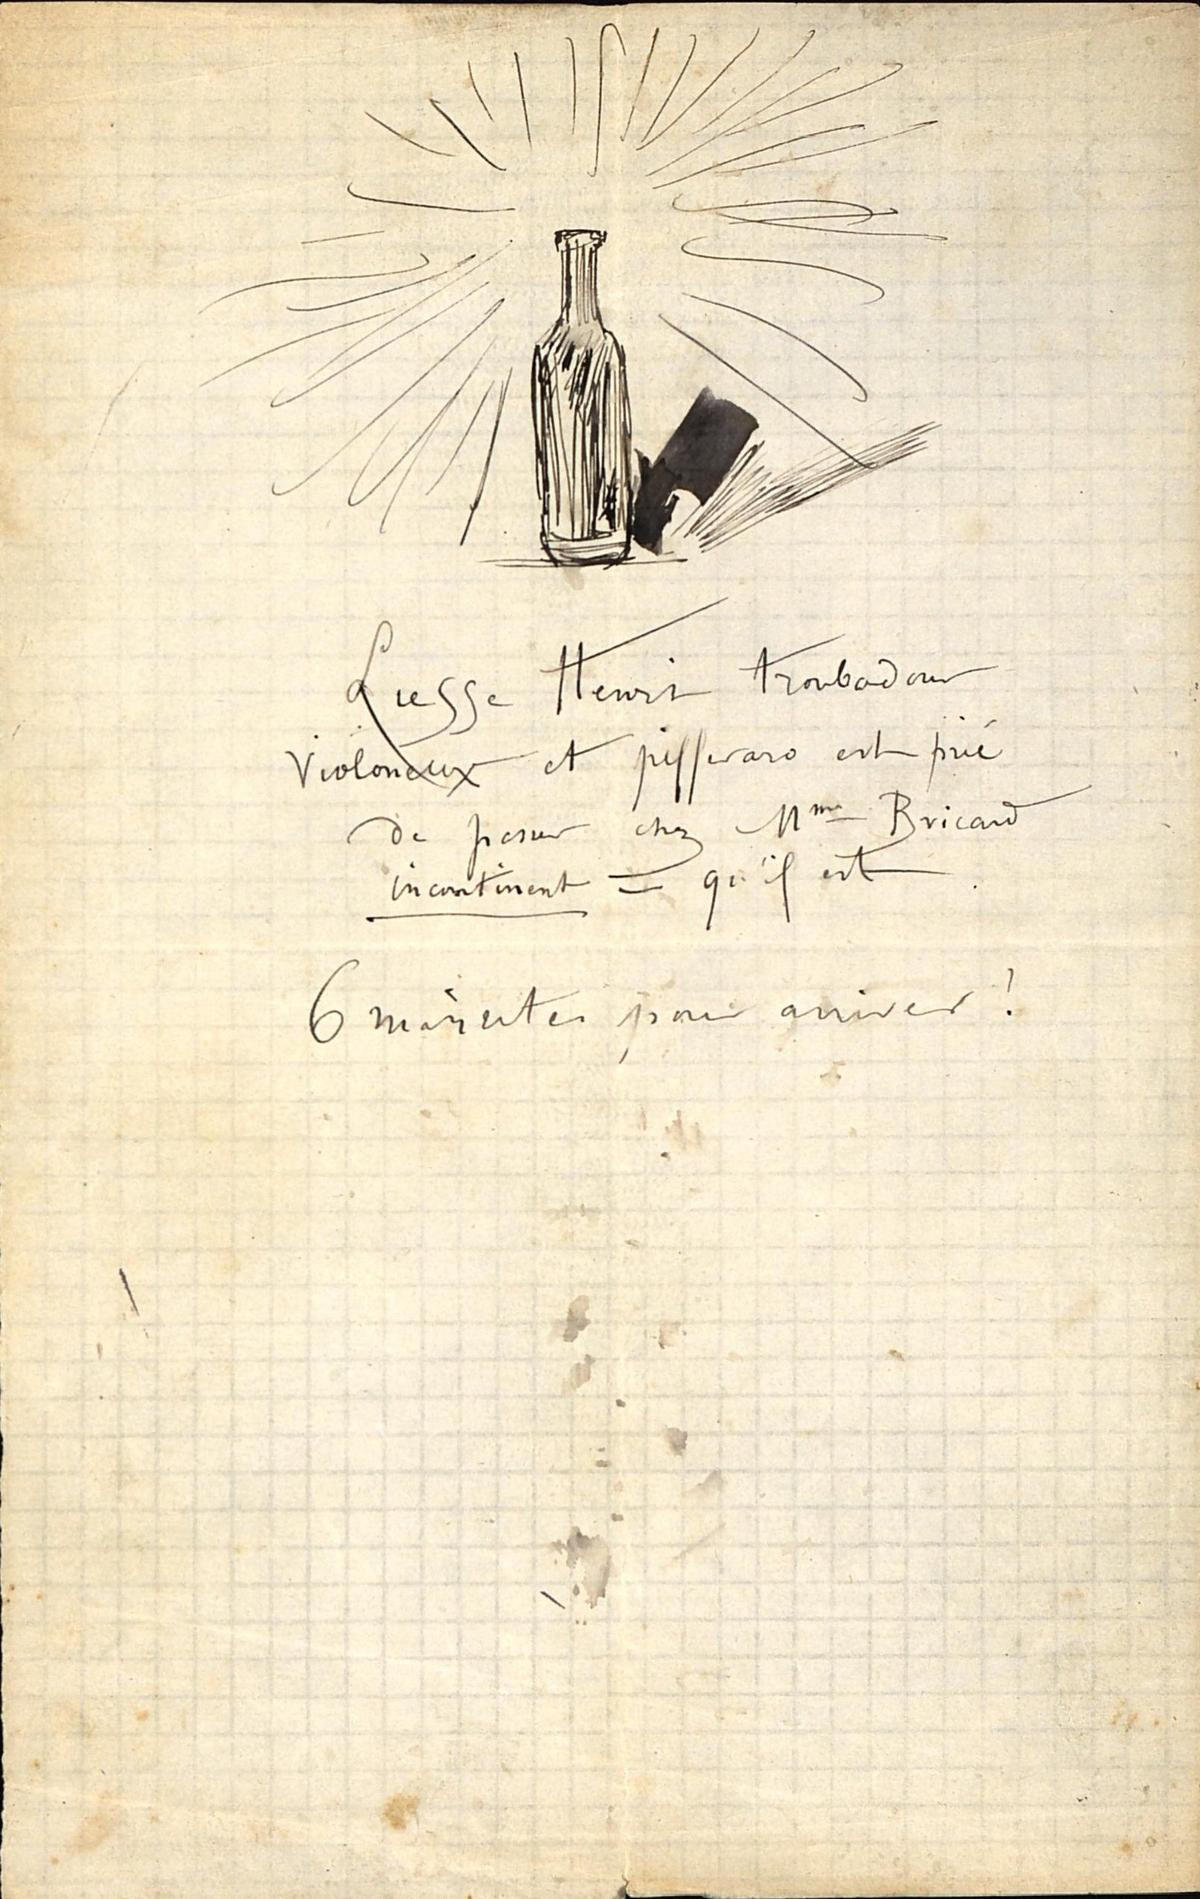 Liesse Henri troubadour
violoneux et pifferaro est prié
de passer chez Mme Bricard
incontinent = qu'il est
6 minutes pour arriver !